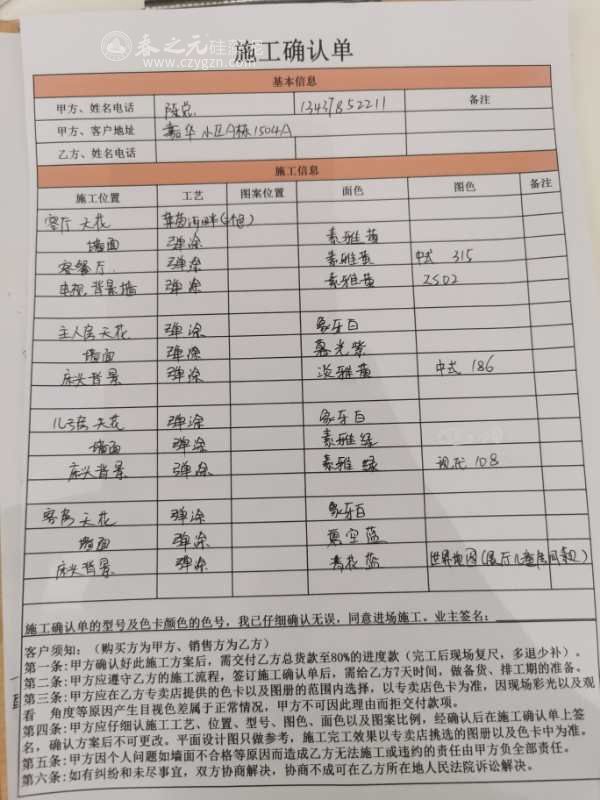 春之元硅藻泥
www.czygzn.com
施工确认单
基本信息
甲方、姓名电话 陈总 13437852211 备注
甲方、客户地址 嘉华小区A栋1504A
乙方、姓名电话
施工信息
施工位置 工艺 图案位置 面色 图色 备注
客厅天花
墙面 弹涂 素雅黄
客餐厅 弹涂 素雅黄 中式 315
电视背景墙 弹涂 素雅黄 2502
主人房天花 弹涂 象牙白
墙面 弹涂 暮光紫
床头背景 弹涂 淡雅黄 中式 186
儿子房天花 弹涂 象牙白
墙面 弹涂 素雅绿
床头背景 弹涂 素雅绿 现代 108
客房天花 弹涂 象牙白
墙面 弹涂 真空蓝
床头背景 弹涂 青花蓝 世界地图(展厅儿童房同款)
施工确认单的型号及色卡颜色的色号，我已仔细确认无误，同意进场施工。业主签名：
客户须知：（购买方为甲方、销售方为乙方）
第一条:甲方确认好此施工方案后，需交付乙方总货款至80%的进度款（完工后现场复尺，多退少补）。
第二条:甲方应遵守乙方的施工流程，签订施工确认单后，需给乙方7天时间，做备货、排工期的准备。
第三条:甲方应在乙方专卖店提供的色卡以及图册的范围内选择，以专卖店色卡为准，因现场彩光以及观
看 角度等原因产生目视色差属于正常情况，甲方不可因此理由而拒交付款项。
第四条:甲方应仔细认施工工艺、位置、型号、图色、面色以及图案比例，经确认后在施工确认单上签
名，确认方案后不可更改。平面设计图只做参考，施工完工效果以专卖店挑选的图册以及色卡中为准。
第五条:甲方因个人问题如墙面不合格等原因而造成乙方无法施工或违约的责任由甲方负全部责任。
第六条:如有纠纷和未尽事宜，双方协商解决，协商不成可在乙方所在地人民法院诉讼解决。